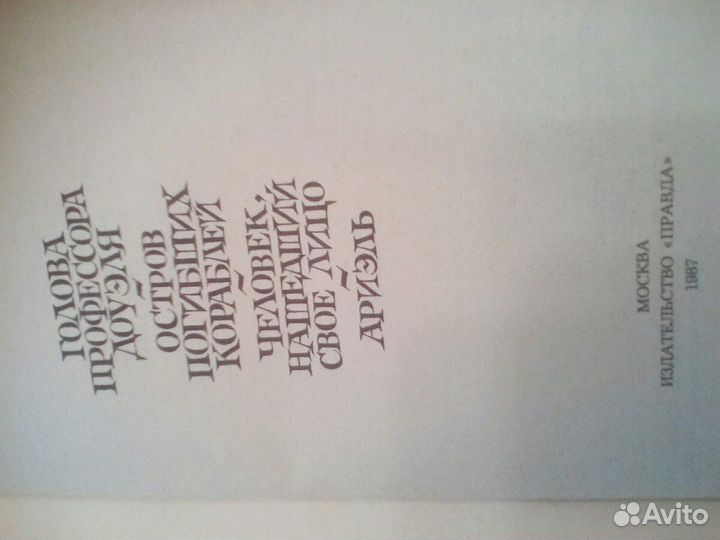 ГОЛОВА
ПРОФЕССОРА
ДОУЭЛЯ
~
ОСТРОВ
ПОГИБШИХ
КОРАБЛЕЙ
~
ЧЕЛОВЕК,
НАШЕДШИЙ
СВОЕ ЛИЦО
~
АРИЭЛЬ
МОСКВА
ИЗДАТЕЛЬСТВО «ПРАВДА»
1987
Avito